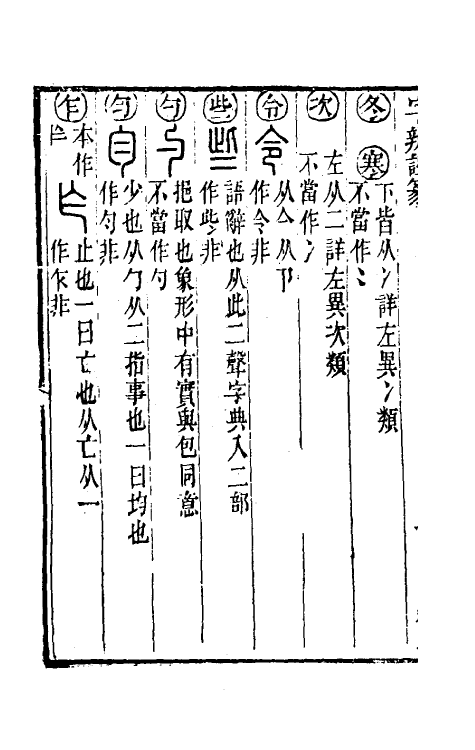 冬 寒 下皆从冫詳左異冫類
不當作⺀
次 左从二詳左異次類
不當作冫
令 从亼从卩
作令非
些 語辭也从此二聲字典入二部
作些非
勺 挹取也象形中有實與包同意
不當作勺
勻 少也从勹从二指事也一曰均也
作匀非
乍 本作 止也一曰亡也从亡从一
作乍非